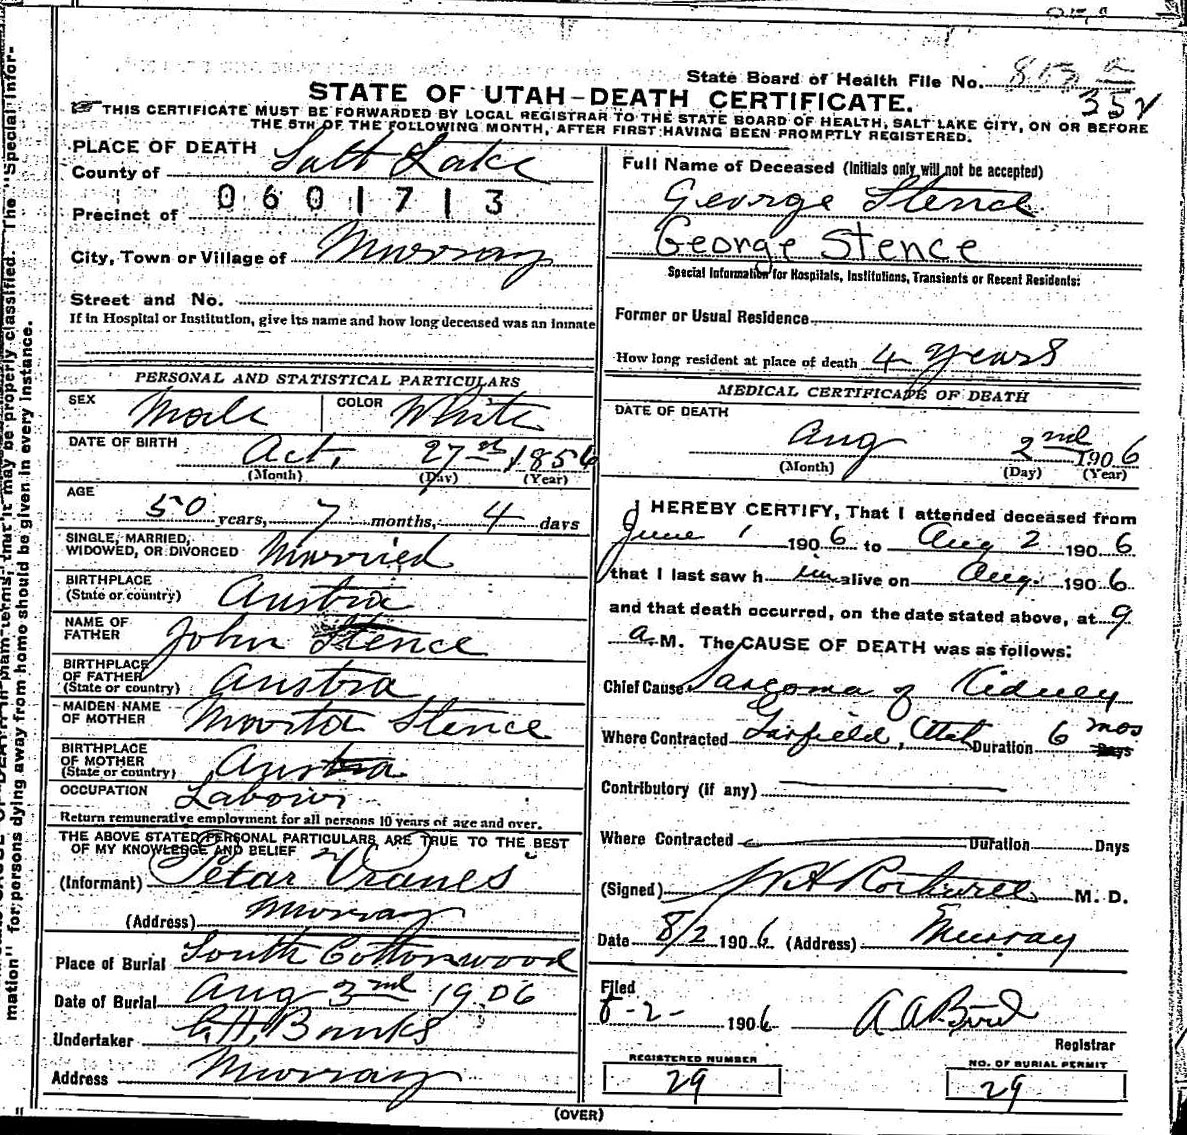 State Board of Health File No. 813 a
352
STATE OF UTAH-DEATH CERTIFICATE.
THIS CERTIFICATE MUST BE FORWARDED BY LOCAL REGISTRAR TO THE STATE BOARD OF HEALTH, SALT LAKE CITY, ON OR BEFORE
THE 5TH OF THE FOLLOWING MONTH, AFTER FIRST HAVING BEEN PROMPTLY REGISTERED.
PLACE OF DEATH
County of Salt Lake
0601713
Precinct of
City, Town or Village of Murray
Street and No.
If in Hospital or Institution, give its name and how long deceased was an inmate
PERSONAL AND STATISTICAL PARTICULARS
SEX Male COLOR White
DATE OF BIRTH Oct. 27th 1856
(Month) (Day) (Year)
AGE
50 years, 7 months, 4 days
SINGLE, MARRIED,
WIDOWED, OR DIVORCED Married
BIRTHPLACE
(State or country) Austria
NAME OF
FATHER John Stence
BIRTHPLACE
OF FATHER
(State or country) Austra
MAIDEN NAME
OF MOTHER Stence
BIRTHPLACE
OF MOTHER
(State or country) Austra
OCCUPATION Labour
Return remunerative employment for all persons 10 years of age and over.
THE ABOVE STATED PERSONAL PARTICULARS ARE TRUE TO THE BEST
OF MY KNOWLEDGE AND BELIEF
(Informant) Petar Vranes
(Address) Murray
Place of Burial South Cottonwood
Date of Burial Aug 3nd 1906
Undertaker G.H. Banks
Address Murray
Full Name of Deceased (Initials only will not be accepted)
George Stence
George Stence
Special Information for Hospitals, Institutions, Transients or Recent Residents:
Former or Usual Residence
How long resident at place of death 4 years
MEDICAL CERTIFICATE OF DEATH
DATE OF DEATH
Aug 2nd 1906
(Month) (Day) (Year)
I HEREBY CERTIFY, That I attended deceased from
June 1 1906 to Aug 2 1906
that I last saw h im alive on Aug. 1906
and that death occurred, on the date stated above, at 9
a M. The CAUSE OF DEATH was as follows:
Chief Cause Sarcoma of Kidney
Where Contracted Garfield, Utah Duration 6 mos Days
Contributory (if any)
Where Contracted Duration Days
(Signed) M. D.
Date 8/2 1906 (Address) Murray
Filed
8-2- 1906 A A Bird
Registrar
REGISTERED NUMBER
29
NO. OF BURIAL PERMIT
29
(OVER)
mation" for persons dying away from home should be given in every instance.